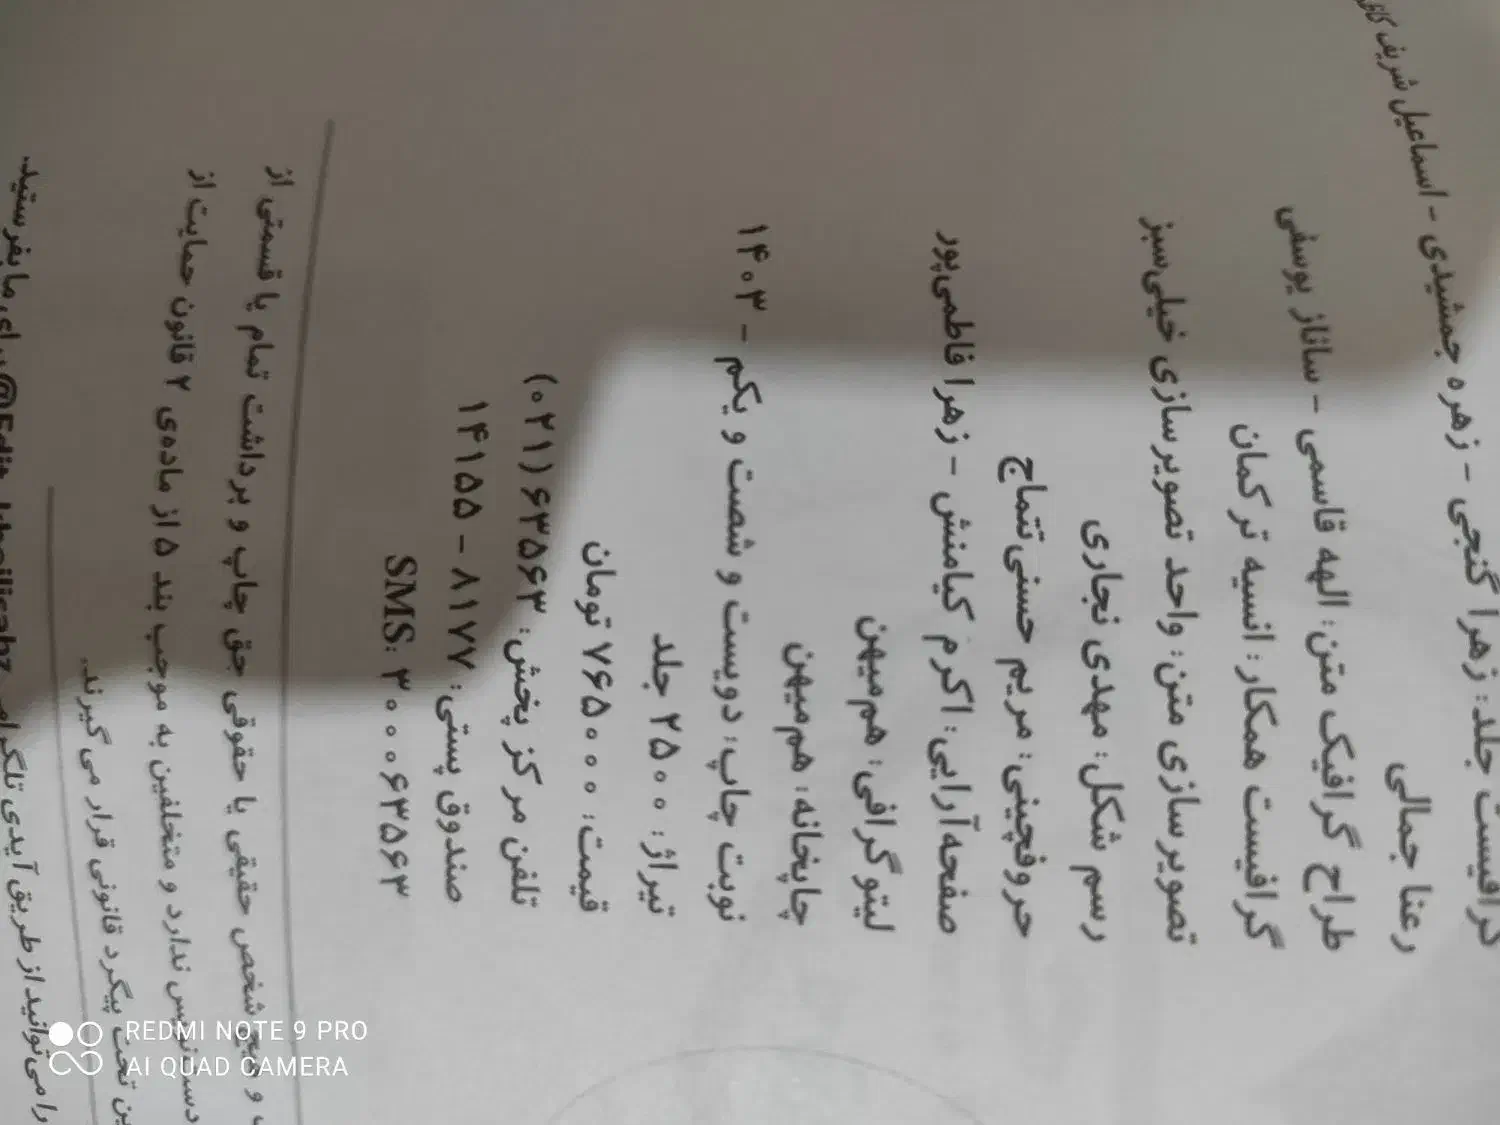 گرافیست جلد: زهرا گنجی - زهره جمشیدی - اسماعیل شریف
رعنا جمالی
طراح گرافیک متن: الهه قاسمی - ساناز یوسفی
گرافیست همکار: انسیه ترکمان
تصویرسازی متن: واحد تصویرسازی خیلی‌سبز
رسم شکل: مهدی نجاری
حروفچینی: مریم حسنی‌تتماج
صفحه‌آرایی: اکرم کیامنش - زهرا فاطمی‌پور
لیتوگرافی: هم‌میهن
چاپخانه: هم‌میهن
نوبت چاپ: دویست و شصت و یکم - ۱۴۰۳
تیراژ: ۲۵۰۰ جلد
قیمت: ۷۶۵۰۰۰ تومان
تلفن مرکز پخش: ۶۳۵۶۳(۰۲۱)
صندوق پستی: ۸۱۷۷ - ۱۴۱۵۵
SMS: ۳۰۰۰۶۳۵۶۳
شخص حقیقی یا حقوقی حق چاپ و برداشت تمام یا قسمتی از
ندارد و متخلفین به موجب بند ۵ از ماده‌ی ۲ قانون حمایت از
تحت پیگرد قانونی قرار می‌گیرند.
را می‌توانید از طریق آیدی تلگرام برای ما بفرستید.
REDMI NOTE 9 PRO
AI QUAD CAMERA